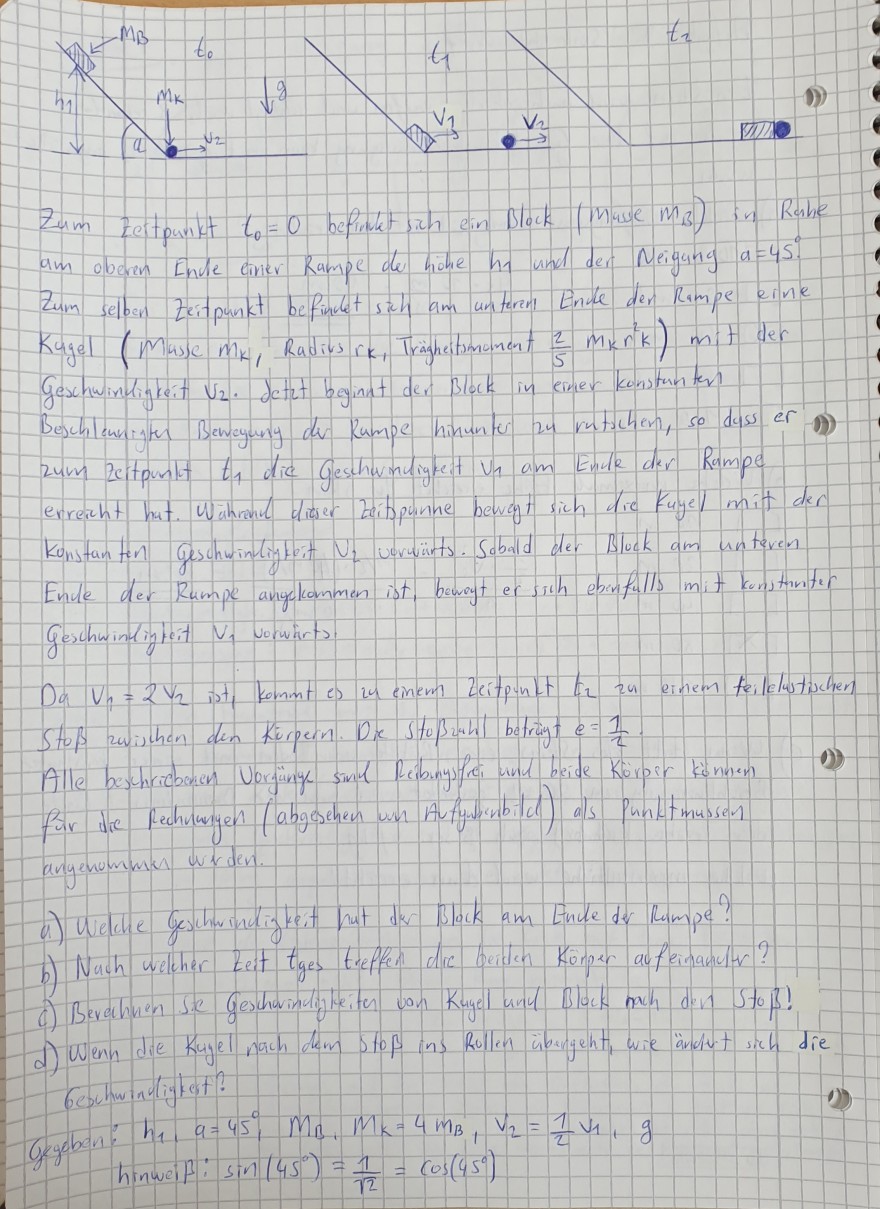 MB t0 t1 t2
h1 MK g V1 V2
a V2
Zum Zeitpunkt t0 = 0 befindet sich ein Block (Masse mB) in Ruhe
am oberen Ende einer Rampe der höhe h1 und der Neigung a=45°.
Zum selben Zeitpunkt befindet sich am unteren Ende der Rampe eine
Kugel (Masse mK, Radius rK, Trägheitsmoment 2/5 mK r²K) mit der
Geschwindigkeit V2. Jetzt beginnt der Block in einer konstanten
Beschleunigten Bewegung die Rampe hinunter zu rutschen, so dass er
zum Zeitpunkt t1 die Geschwindigkeit V1 am Ende der Rampe
erreicht hat. Während dieser Zeitspanne bewegt sich die Kugel mit der
Konstanten Geschwindigkeit V2 vorwärts. Sobald der Block am unteren
Ende der Rampe angekommen ist, bewegt er sich ebenfalls mit konstanter
Geschwindigkeit V1 vorwärts.
Da V1 = 2V2 ist, kommt es zu einem Zeitpunkt t2 zu einem teilelastischen
Stoß zwischen den Körpern. Die Stoßzahl beträgt e = 1/2.
Alle beschriebenen Vorgänge sind Reibungsfrei und beide Körper können
für die Rechnungen (abgesehen von Aufgabenbild) als Punktmassen
angenommen werden.
a) Welche Geschwindigkeit hat der Block am Ende der Rampe?
b) Nach welcher Zeit tges treffen die beiden Körper aufeinander?
c) Berechnen Sie Geschwindigkeiten von Kugel und Block nach den Stoß!
d) Wenn die Kugel nach dem Stoß ins Rollen übergeht, wie ändert sich die
Geschwindigkeit?
Gegeben: h1, a=45°, MB, MK=4mB, V2 = 1/2 V1, g
hinweiß: sin(45°) = 1/√2 = cos(45°)